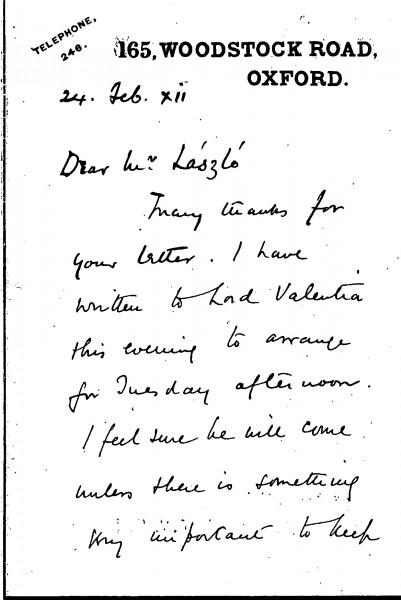 TELEPHONE,
246.
165, WOODSTOCK ROAD,
OXFORD.
24. Feb. xii
Dear Mr László
Many thanks for
your letter. I have
written to Lord Valentia
this evening to arrange
for Tuesday afternoon.
I feel sure he will come
unless there is something
very important to keep